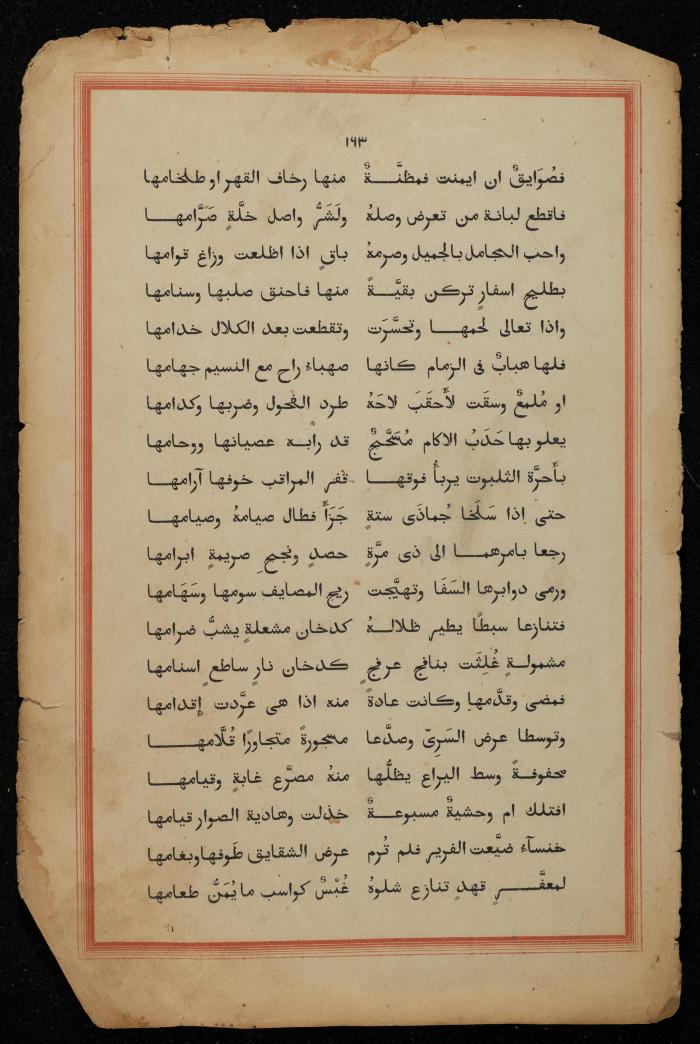 ١٦٣
فصُوَايقٌ ان ايمنت فمظنَّـــةٌ منها رخاف القهر او طلخامها
فاقطع لبانة من تعرض وصلهُ ولَشَرُّ واصل خلَّةٍ صَرَّامهـــا
واحب المجامل بالجميل وصرمهُ باقٍ اذا اظلعت وزاغ قوامها
بطليح اسفارٍ تركن بقيَّـــةً منها فاحنق صلبها وسنامها
واذا تعالى لحمهـــا وتحسَّرَت وتقطعت بعد الكلال خدامها
فلها هبابٌ فى الزمام كانها صهباءُ راح مع النسيم جهامها
او مُلمعٌ وسقَت لأَحقَبَ لاحَهُ طرد الفحول وضربها وكدامها
يعلو بها حَدَبُ الاكام مُسَحَّجٌ قد رابـه عصيانها ووحامها
بأَحرَّة الثلبوت يربأُ فوقهـــا قفر المراقب خوفها آرامهـــا
حتى إذا سَلَخا جُماذَى ستةٍ جَزَأَ فطال صيامهُ وصيامهـــا
رجعا بامرهمـــا الى ذى مرَّةٍ حصدٍ ونجحِ صريمةٍ ابرامها
ورمى دوابرها السَفَا وتهيَّجت ريح المصايف سومها وسَهَامها
فتنازعا سبطًا يطير ظلالـــهُ كدخان مشعلةٍ يشبُّ ضرامها
مشمولـــةٍ غُلِثَت بنافج عرفجٍ كـدخان نارٍ ساطعٍ اسنامها
فمضى وقدَّمها وكانت عادةً منه اذا هى عرَّدت إِقدامها
وتوسطا عرض السَرِىّ وصدَّعا مسجورةً متجاورًا قُلَّامهـــا
محفوفـــةً وسط اليراع يظلُّها منهُ مصرَّع غابةٍ وقيامهـــا
افتلك ام وحشيةٌ مسبوعـــةٌ خذلت وهادية الصوار قيامها
خنسآءُ ضيَّعت الفرير فلم تُرم عرض الشقايق طَوفها وبغامها
لمعفَّـــرٍ قهدٍ تنازع شلوهُ غُبْسٌ كواسب ما يُمَنُّ طعامها